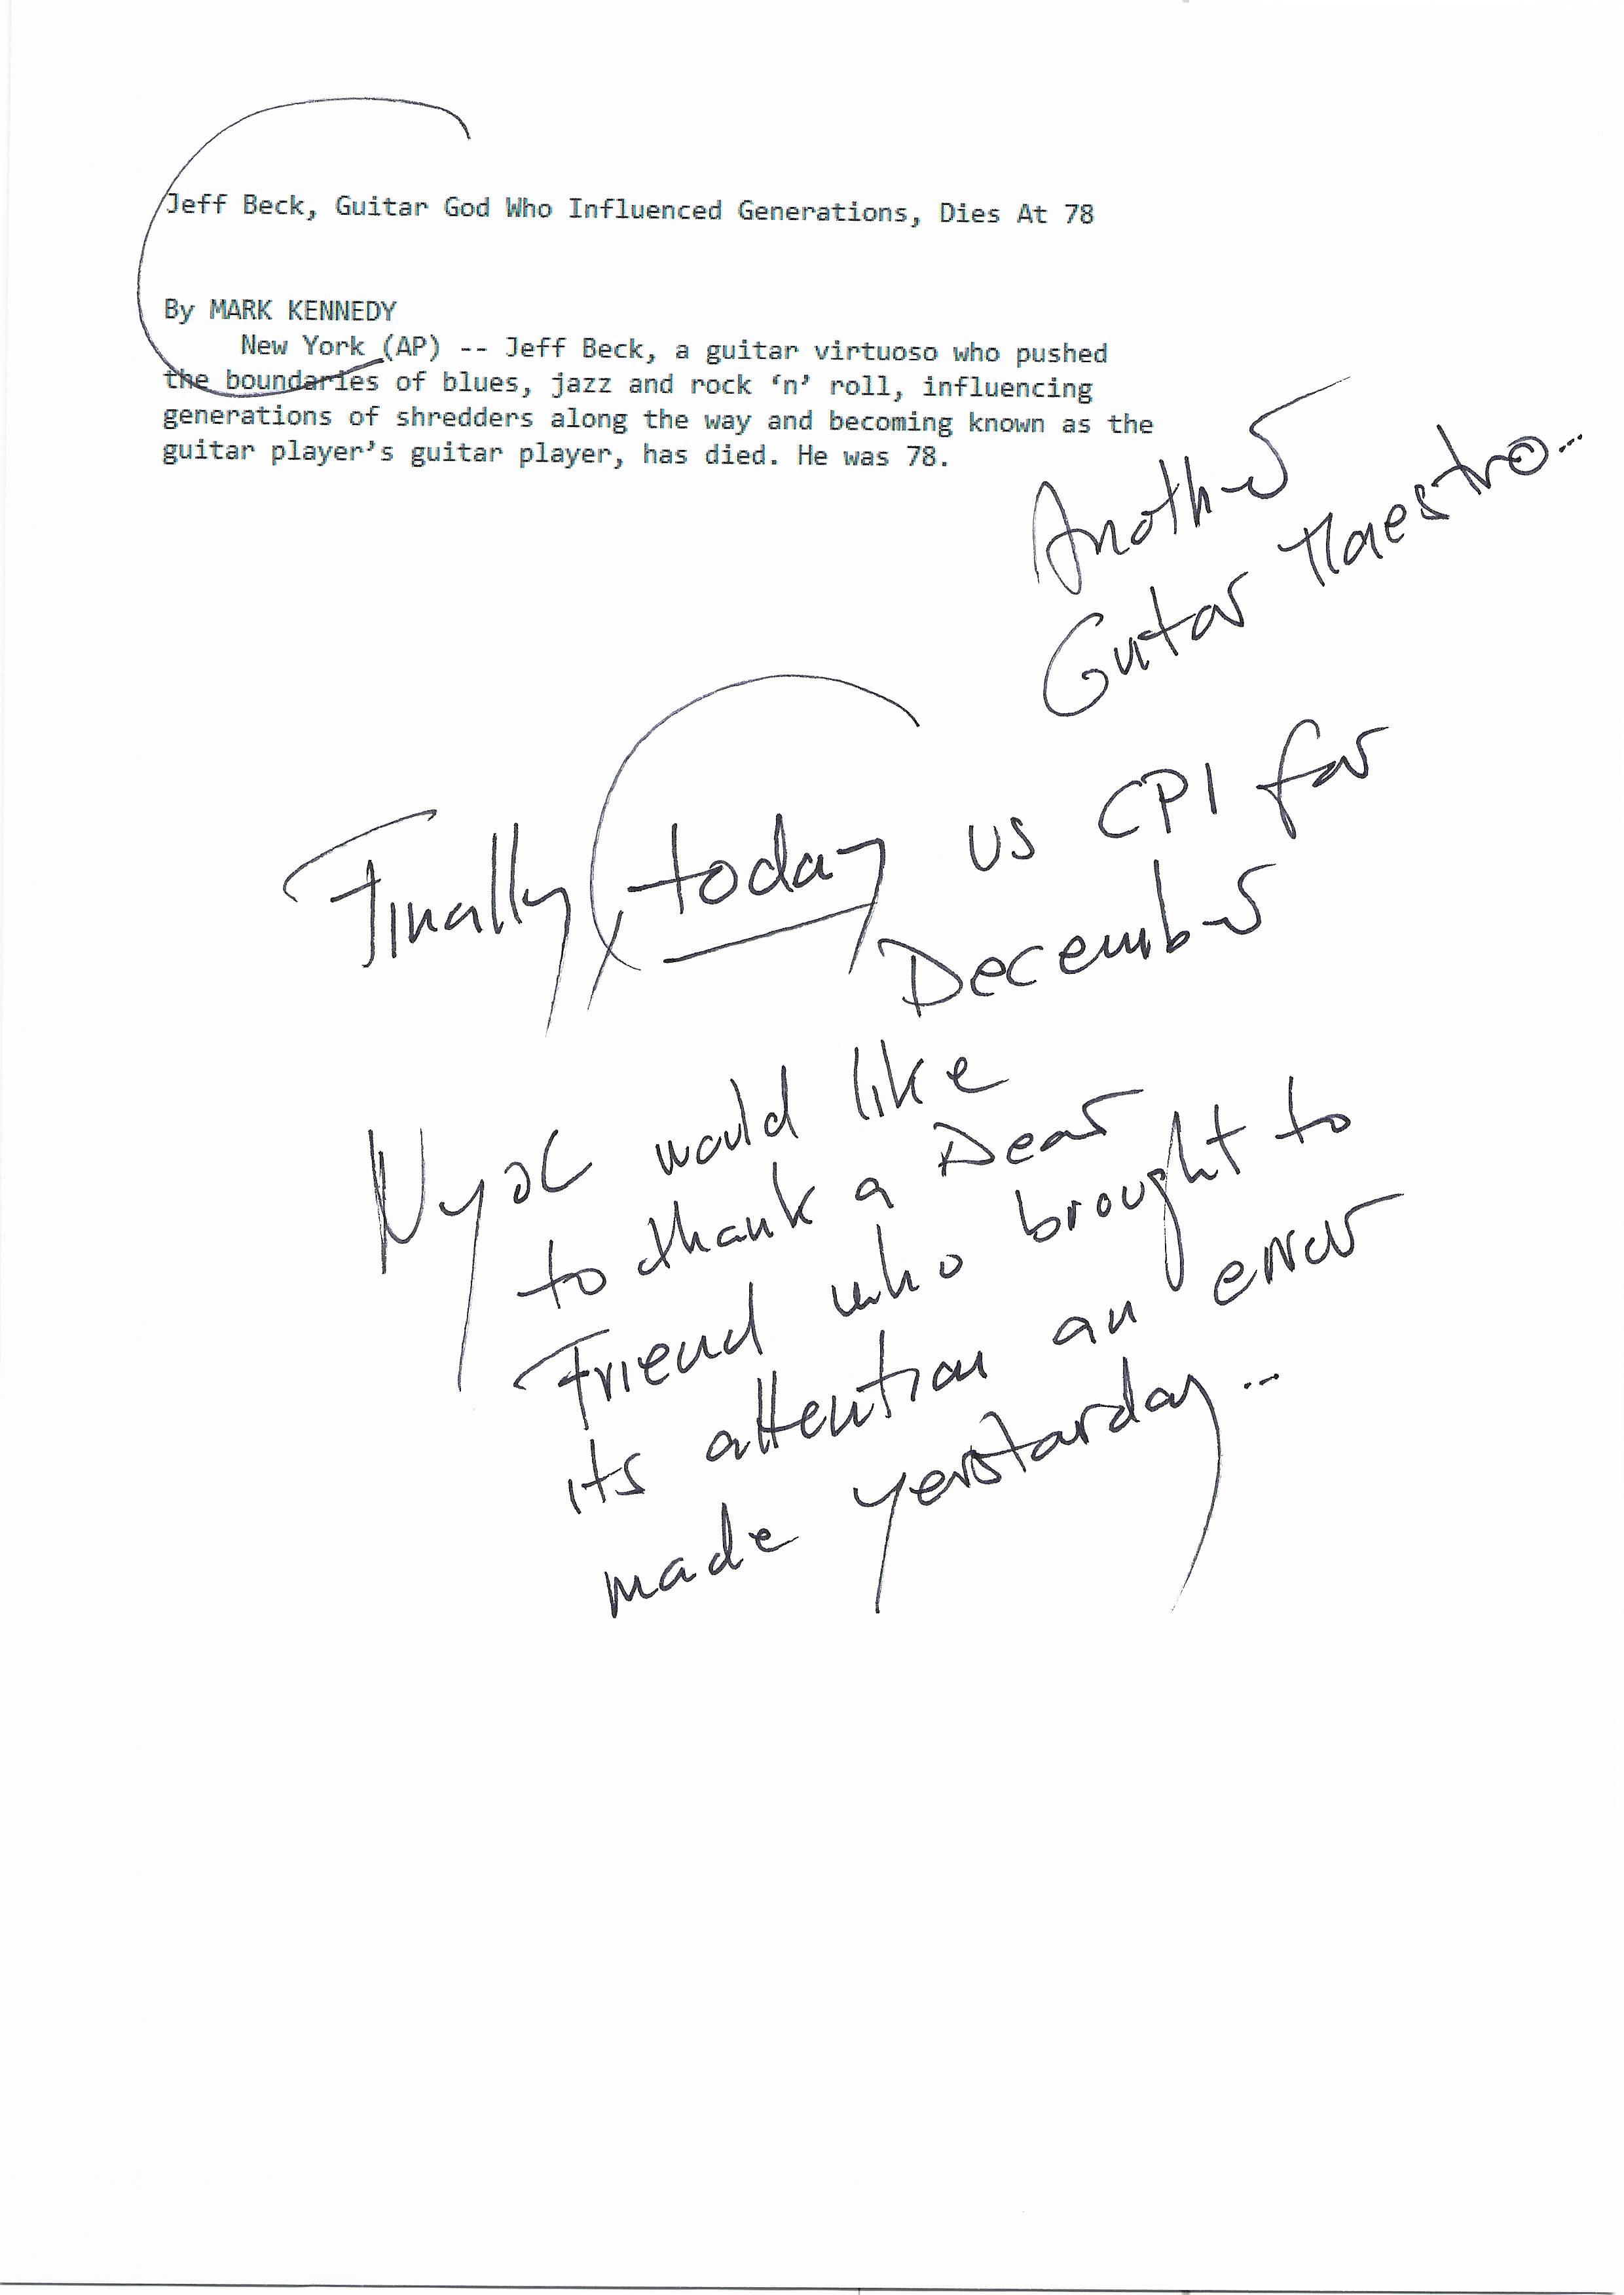 Jeff Beck, Guitar God Who Influenced Generations, Dies At 78
By MARK KENNEDY
New York (AP) -- Jeff Beck, a guitar virtuoso who pushed
the boundaries of blues, jazz and rock ‘n’ roll, influencing
generations of shredders along the way and becoming known as the
guitar player’s guitar player, has died. He was 78.
Another
Guitar Maestro...
Finally, today US CPI for
December
would like
to thank a Dear
Friend who brought to
its attention an error
made yerstarday...